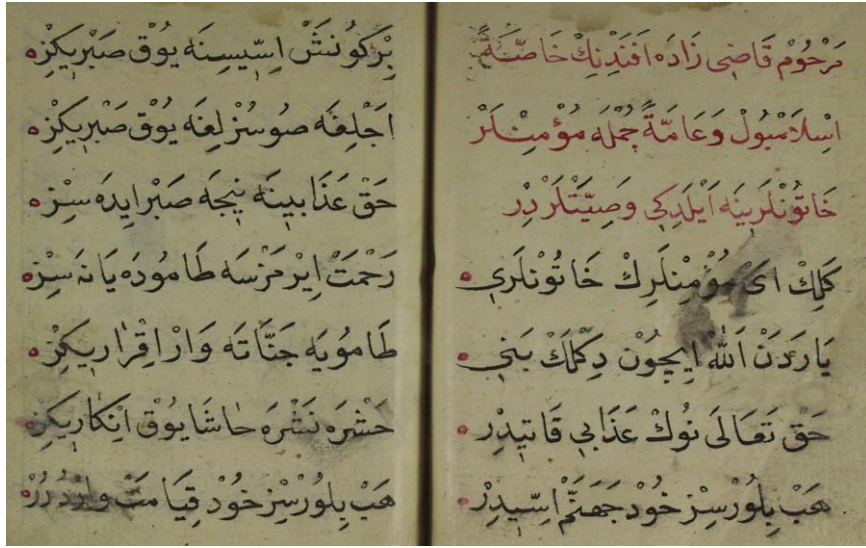 مَرْحُومْ قَاضِى زَادَه اَفَنْدِنِكْ خَاصَّةً
اِسْلَامْبُولْ وَعَامَّةً جُمْلَه مُؤْمِنْلَرْ
خَاتُونْلَرِينَه اَيْلَدِكِى وَصِيَّتْلَرْدِرْ
كَلِكْ اَىْ مُؤْمِنْلَرِكْ خَاتُونْلَرِى
يَارَدَنْ اَللّٰهْ اِيچُونْ دِكْلَكْ بَنِى
حَقْ تَعَالَى نُوكْ عَذَابِى قَاتِيدِرْ
هَبْ بِلُورْسِزْ خُودْ جَهَنَّمْ اِسِّيدِرْ
بِرْ كُونَشْ اِسِّيسِنَه يُوْقْ صَبْرِيكِزْ
اَجْلِغَه صُوسُزْلِغَه يُوْقْ صَبْرِيكِزْ
حَقْ عَذَابِينَه نِيجَه صَبْرْ ايِدَه سِزْ
رَحْمَتْ اِيرْمَزْسَه طَامُودَه يَانَه سِزْ
طَامُويَه جَنَّاتَه وَارْ اِقْرَارِيكِزْ
حَشْرَه نَشْرَه حَاشَا يُوْقْ اِنْكَارِيكِزْ
هَبْ بِلُورْسِزْ خُودْ قِيَامَتْ وَارْدُرُرْ